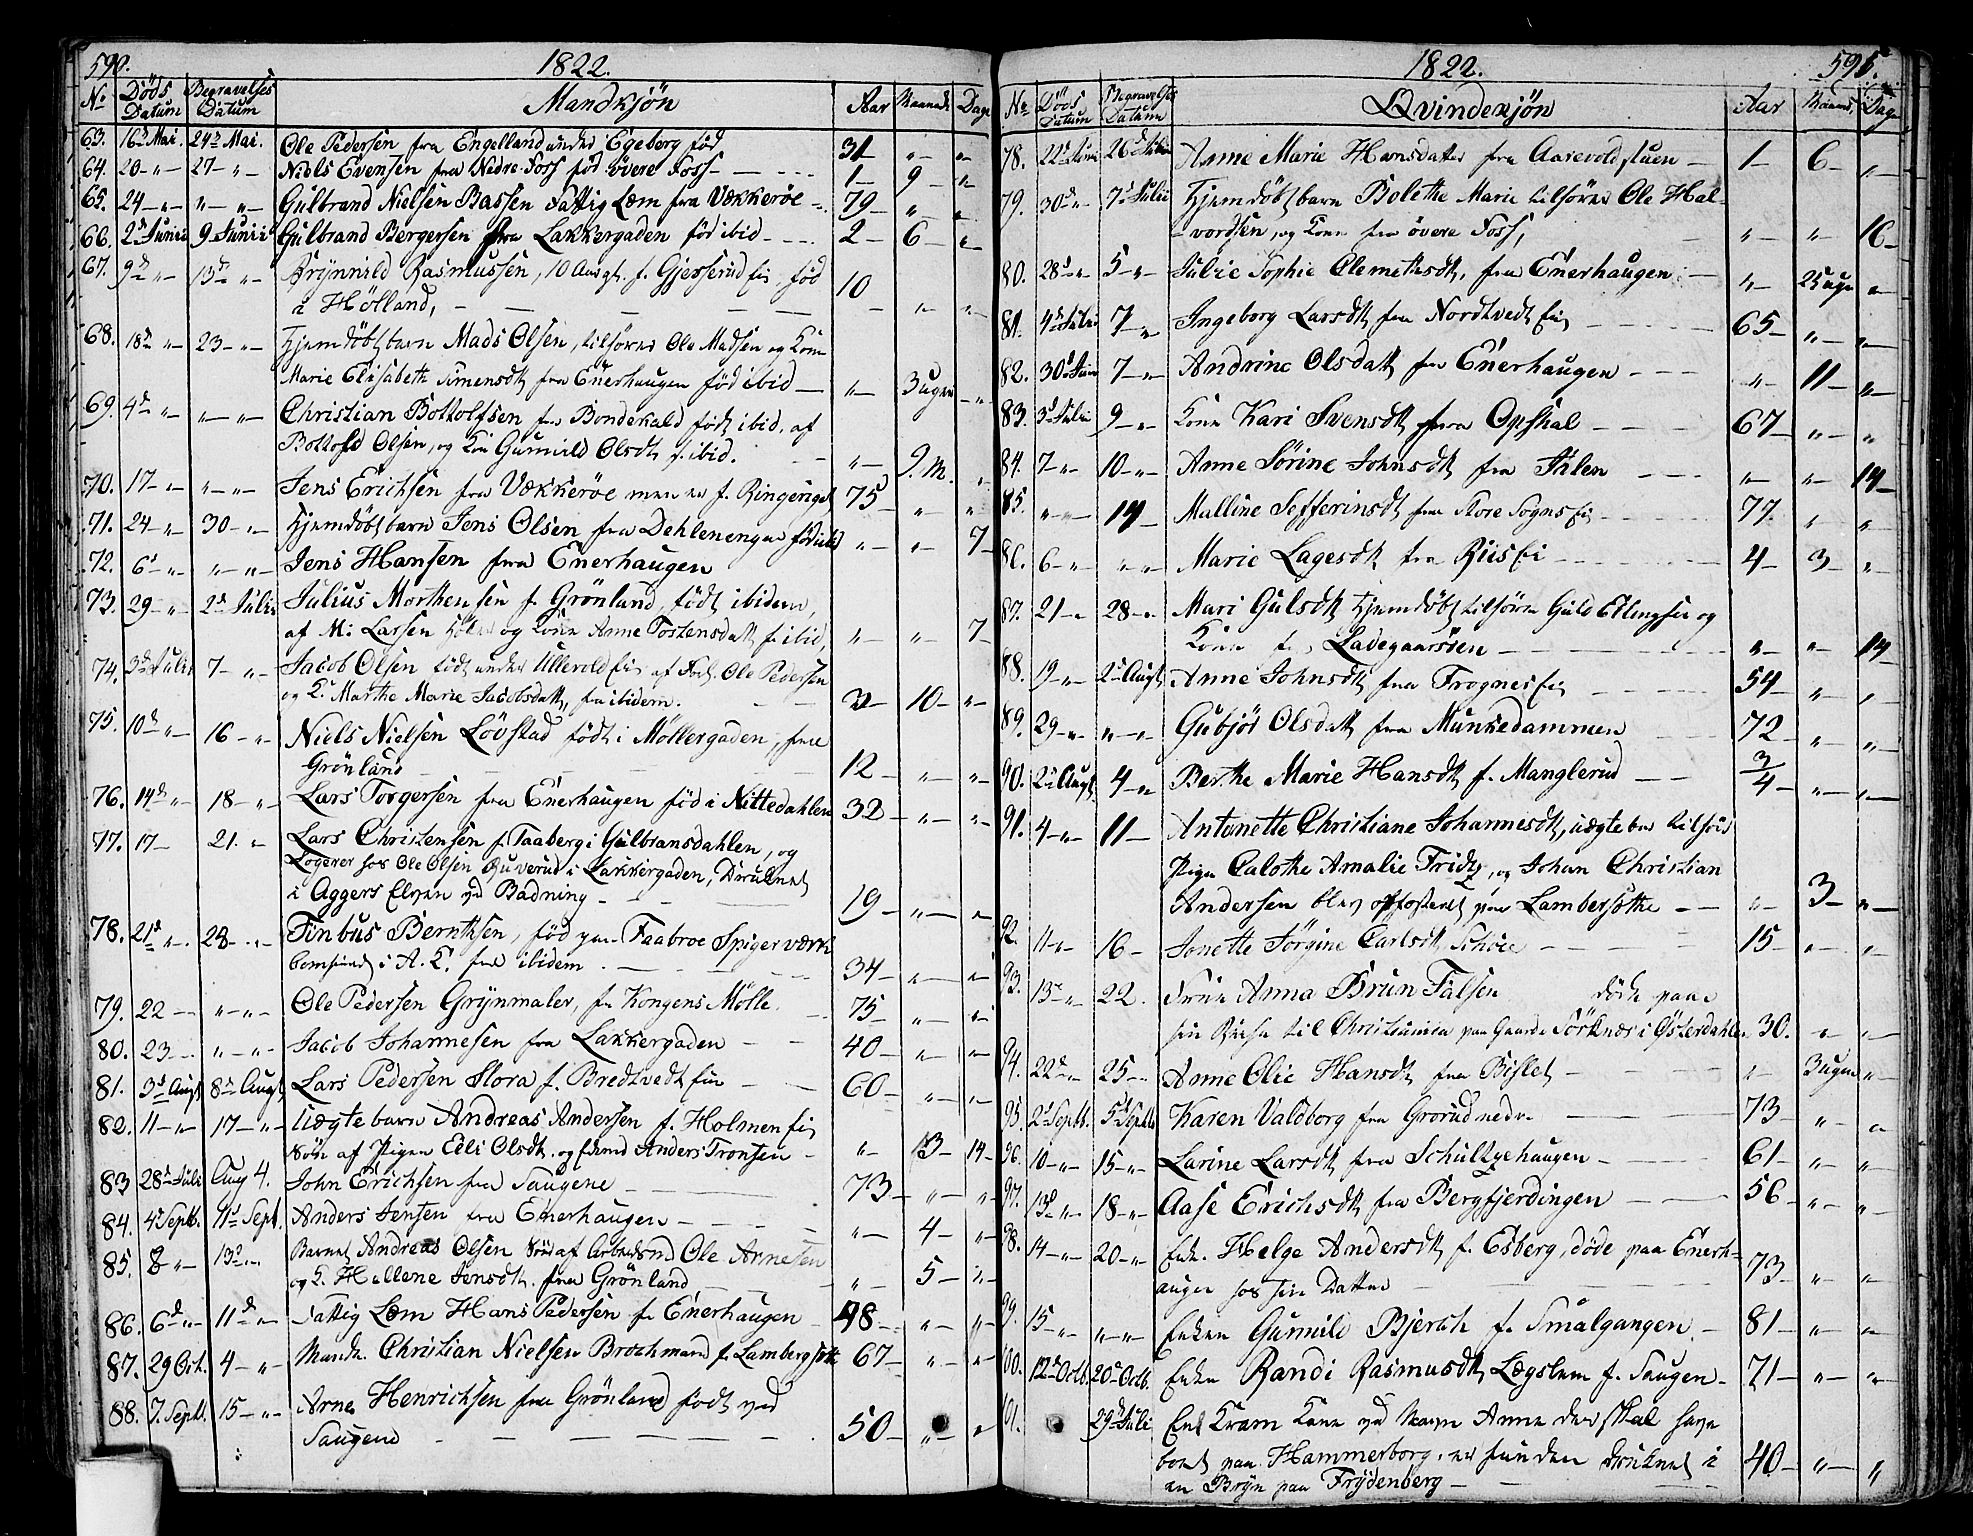 590.
1822.
No Döds Datum Begravelses Datum Mandkjön Aar Maaned Dage
63. 16d Mai. 24d Mai. Ole Pedersen fra Engelland under Egeberg föd 31 " "
64. 20 " 27 " Niels Evensen fra Nedre Foss föd övere Foss 1 9 "
65. 24 " " " Gulbrand Nielsen Bassen Fattig Lem fra Vækkeröe 79 " "
66. 2d Junii 9 Junii Gulbrand Bergersen fra Lakkergaden föd ibid 2 6 "
67. 9d " 13d " Brynnild Rasmussen, 10 Augt. f. Gjesserud Ei, föd
i Hölland, 10 " "
68. 18d " 23 " Hjemdöbt barn Mads Olsen, tilhörer Ole Madsen og Kone
Marie Elisabeth Simensdt fra Enerhaugen föd ibid " 3 uger "
69. 4d " " " Christian Bottolfsen fra Bondekald födt ibid, af
Bottolf Olsen, og Kon Gunnild Olsdt f. ibid. " 9. M. "
70. 17 " " " Jens Erichsen fra Vækkeröe man er f. Ringeriget 75 " "
71. 24 " 30 " Hjemdöbt barn Jens Olsen fra Dehlenengen föd ibid " " 7
72. 6d " " " Jens Hansen fra Enerhaugen
73. 29 " 2d Julii Julius Morthensen f. Grönland, födt ibidem,
af M: Larsen og Kone Anne Tostensdatt f. ibid, " " 7
74. 3d Julii 7 " Jacob Olsen födt under Ullevold Ei af Ole Pedersen
og K. Marthe Marie Jacobsdatt, fra ibidem. 2 10 "
75. 10d " 16 " Niels Nielsen Lövstad födt i Möllergaden, fra
Grönland 12 " "
76. 14d " 18 " Lars Torgersen fra Enerhaugen föd i Nittedahlen 32 " "
77. 17 21 " Lars Christensen f. Faaberg i Gulbransdahlen, og
Logerer hos Ole Olsen Ruverud i Lakkergaden, Druknet
i Aggers Elven ved Badning 19 " "
78. 21d " 28 " Tinbus Bernthsen, föd paa Faabroe Spigerværk
i A. K. fra ibidem 34 " "
79. 22 " " Ole Pedersen Grynmaler, fra Kongens Mölle 75 " "
80. 23 " " Jacob Johannesen fra Lakkergaden 40 " "
81. 3d Augt 8d Augt Lars Pedersen Flora f. Bredtvedt Eie 60 " "
82. 11 " 17 " Uægte barn Andreas Andersen f. Holmen Ei
Sön af Pigen Edli Olsdt. og Anders Tronsen " 3 14
83 28d Juli Aug 4. John Erichsen fra Saugene 73 " "
84. 4d Septb. 11d Sept. Anders Jensen fra Enerhaugen " 4 "
85. 8 " 13d " Barnet Andreas Olsen Sön af Arbedsmd Ole Arnesen
og K. Hellene Jensdt. fra Grönland " 5 "
86. 6d " 11d " Fattig Lem Hans Pedersen f. Enerhaugen 48 " "
87. 29 Oct. 4 " Mandk. Christian Nielsen Brochmand f. Lambergsöth 67 " "
88. 7. Septb. 15 " Arne Henrichsen fra Grönland födt ved
Saugene 50 " "
1822.
595.
No Döds Datum Begravelses Datum Qvindekjön Aar Maaned, Dage
78. 22d Juni 26d Julii Anne Marie Hansdatter fra Aarevoldstuen 1 6 "
79. 30d " 7d Julii Hjemdöbt barn Bolethe Marie tilhörer Ole Hal-
vordsen, og Kone fra övere Foss, " " 16
80. 28d " 5 " Julie Sophie Clemethsdt, fra Enerhaugen " 25 uger "
81. 4d Julii 7 " Ingeborg Larsdt fra Nordtvedt Ei 65 " "
82. 30d Juni 7 " Andrine Olsdatt fra Enerhaugen " 11 "
83. 3d Julii 9 " Kone Kari Svensdt fra Opshal 67 " "
84. 7 " 10 " Anne Sörine Johnsdt fra " " 14
85. " " 14 Malline Sefferinsdt fra Store Sogns Ei 77. " "
86. 6 " " " Marie Lagesdt fra Riis Ei 4 3 "
87. 21 " 28 " Mari Gulsdt Hjemdöbt tilhörer Guld Ellingsen og
Kone f. Ladegaarsöen " " 14
88. 19 " 2d Augt Anne Johnsdt fra Frognes Ei 54 " "
89. 29 " " " Gubjör Olsdatt fra Munkedammen 72 " "
90. 2d Augt. 4 " Berthe Marie Hansdt f. Manglerud 3/4 " "
91. 4 " 11 Antonette Christiane Johannesdt, uægte barn tilhörer
Pige Calothe Amalie Fridz, og Johan Christian
Andersen blev opfostret paa Lambersöthe " 3 "
92. 11 " 16 Jonette Jörgine Carlsdt Schöie 15 " "
93. 13d " 22. Frue Anna Brun Falsen döde paa
sin Reise til Christiania paa Gaarde Törknes i Österdahle. 30. " "
94. 22d " 25 Anne Olie Hansdt fra Bislet " 3 uger "
95. 2d Septb. 5d Septb. Karen Valdborg fra Grorud nedr. 73 " "
96. 10 " 15 " Larine Larsdt fra Schultzehaugen 61 " "
97. 13d " 18 " Aase Erichsdt fra Bergfjerdingen 56 " "
98. 14 " 20 " Enke. Helge Andersdt f. Esberg, döde paa Enerh-
augen hos sin Datter 73 " "
99. 15 " " " Enken Gunnild Bjerch f. Smalgangen 81 " "
100. 12d Octb. 20d Octb. Enke Randi Rasmusdt Lægslem f. Saugen 71 " "
101. 29d Juli Ent Kram Kone ved Navn Anne der skal have
boet paa Hammerborg, er funden druknet i
en Bryn paa Frydenberg 40 " "